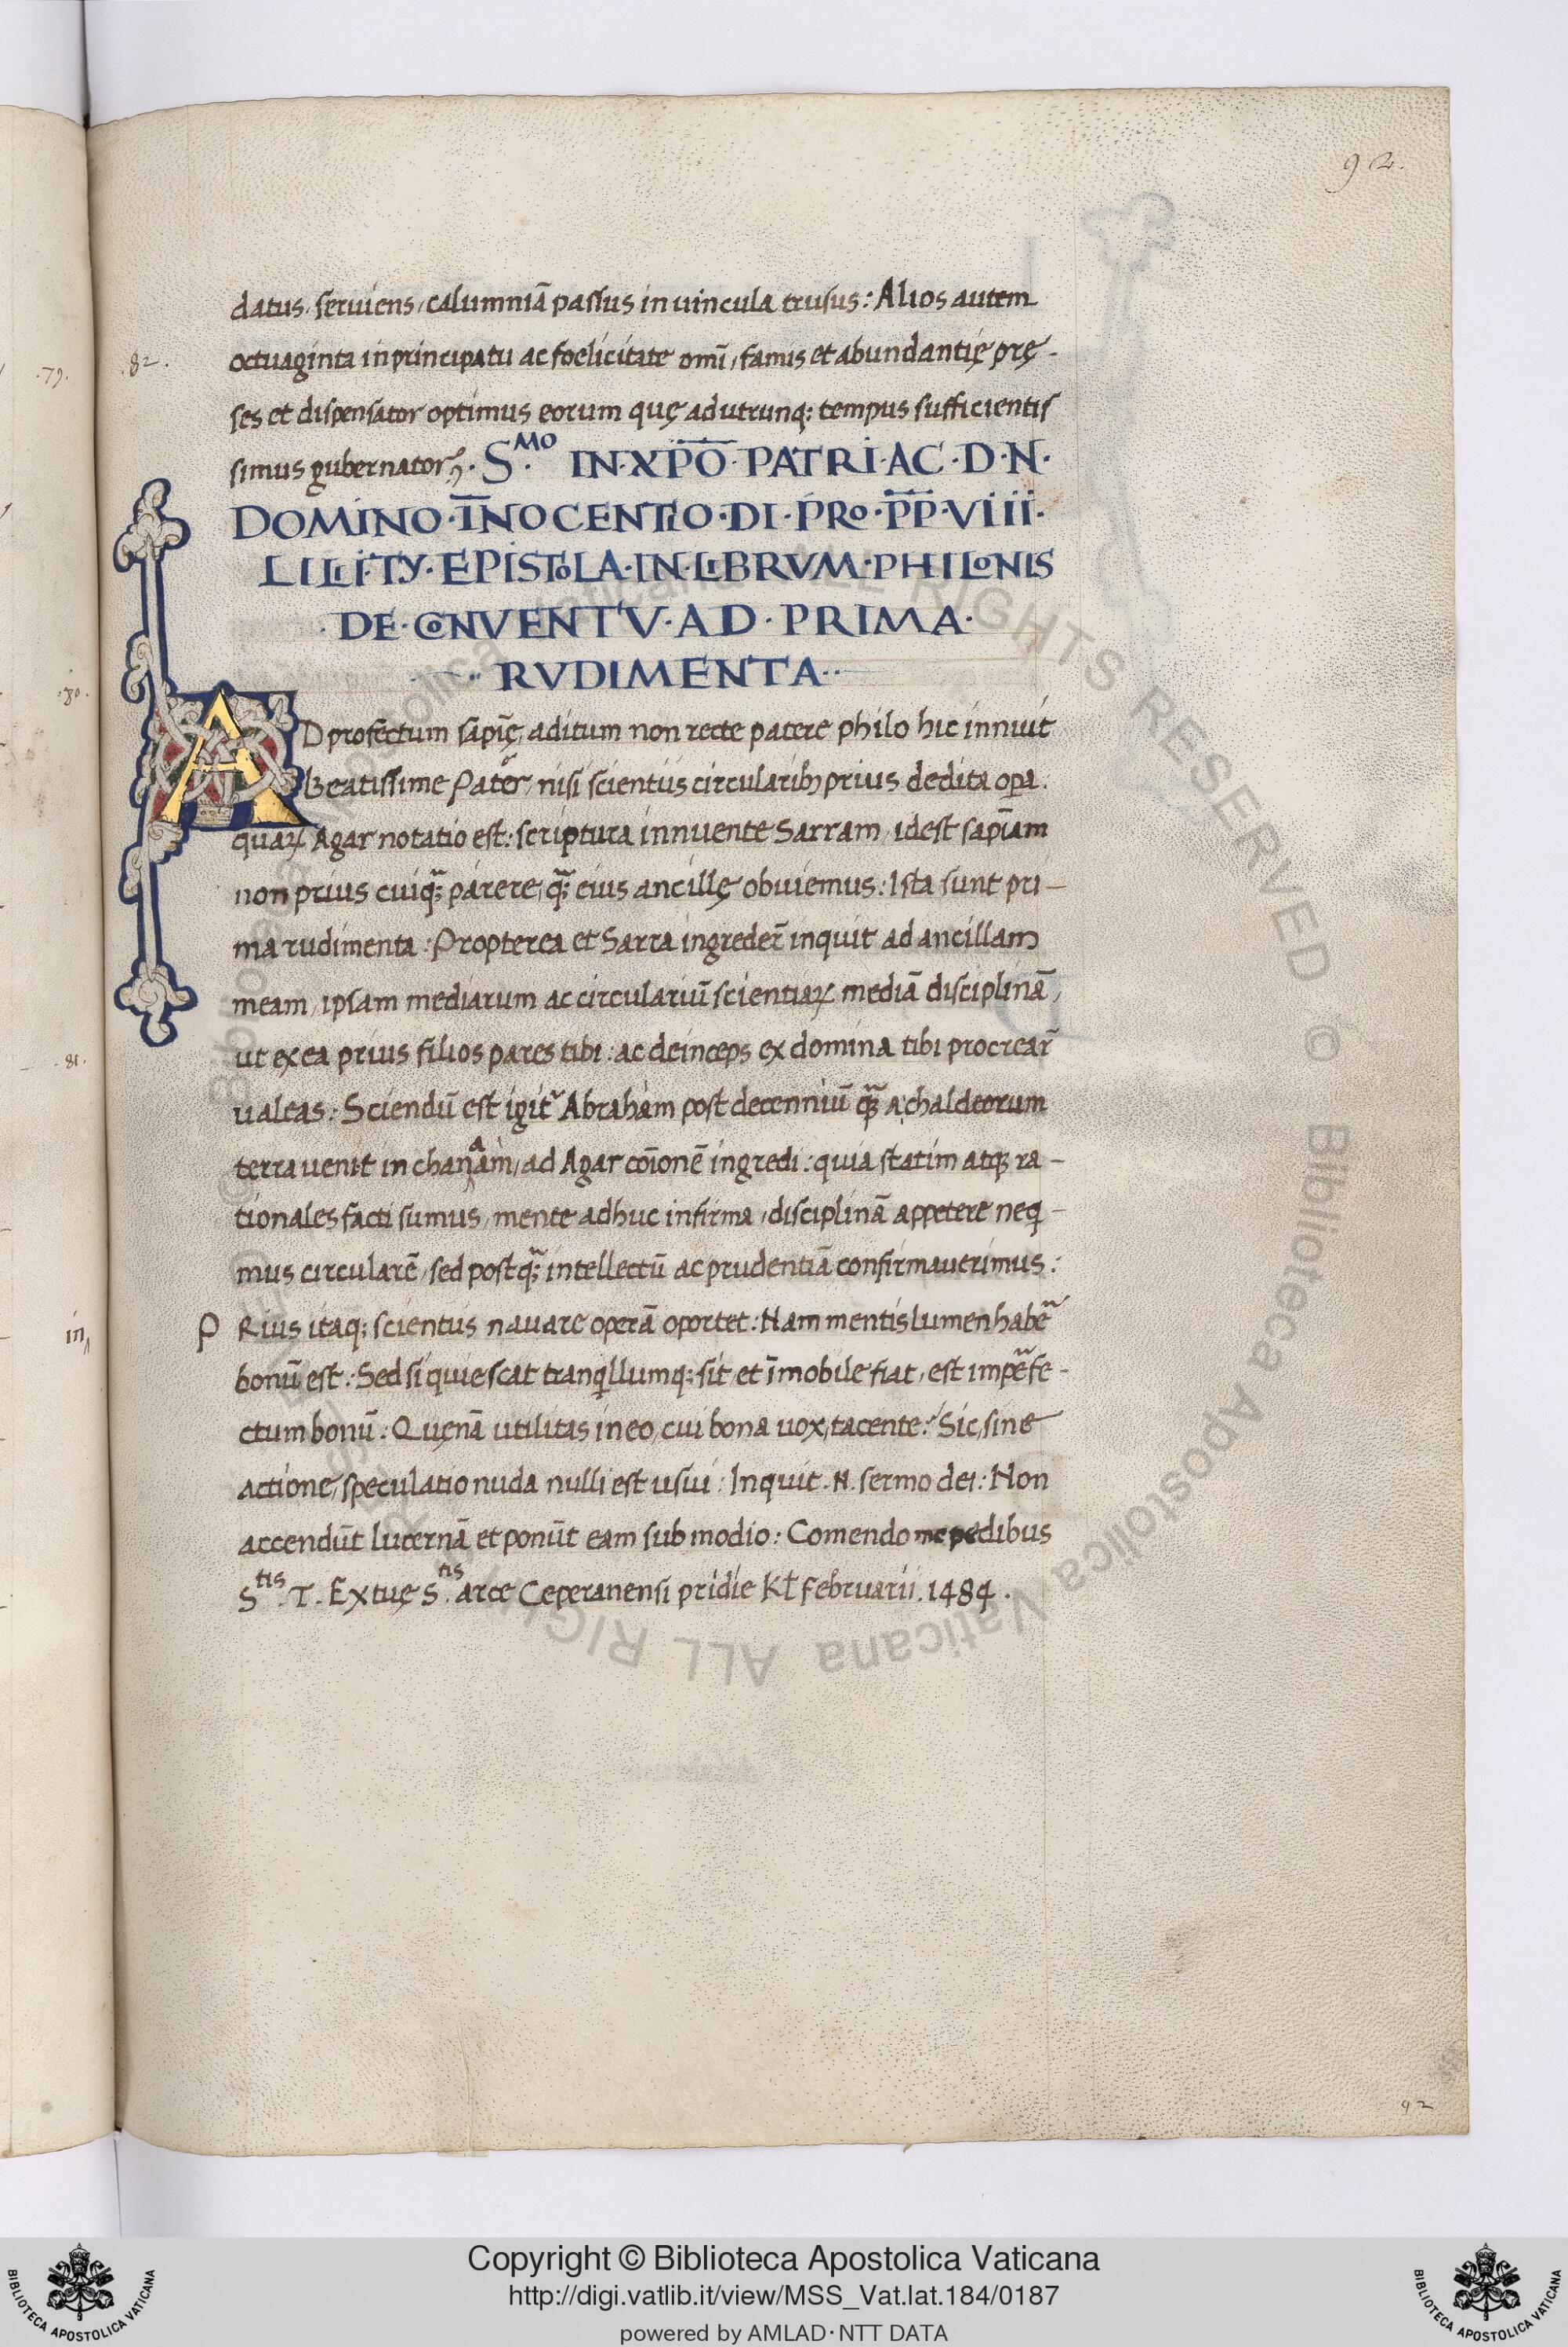 92.
datus, seruiens, calumniā passus in uincula trusus: Alios autem
.82.
octuaginta in principatu ac foelicitate omī, famis et abundantię prę-
.79.
ses et dispensator optimus eorum quę ad utrunq; tempus sufficientis
simus gubernator. S.MO IN·XPŌ·PATRI·AC·D·N·
DOMINO·ĪNOCENTIO·DI·PRO·PP·VIII·
LILII·TY·EPISTOLA·IN·LIBRVM·PHILONIS
DE·CONVENTV·AD·PRIMA·
RVDIMENTA··
.80.
AD profectum sapīę, aditum non recte patere philo hic innuit
beatissime Pater, nisi scientiis circularibꝫ prius dedita opa.
quaꝝ Agar notatio est: scriptura innuente Sarram, idest sapīam
non prius cuiq̄ꝫ parere, q̄ꝫ eius ancillę obuiemus: Ista sunt pri-
ma rudimenta: Propterea et Sarra ingreder̄ inquit ad ancillam
meam, ipsam mediarum ac circulariū scientiaꝝ mediā disciplinā,
81.
ut ex ea prius filios pares tibi: ac deinceps ex domina tibi procrear̄
ualeas: Sciendū est igit᷑ Abraham post decenniū q̄ꝫ a chaldeorum
terra uenit in chanaam, ad Agar cōionē ingredi: quia statim atqꝫ ra-
tionales facti sumus, mente adhuc infirma, disciplinā appetere neq-
mus circularē, sed postq̄ꝫ intellectū ac prudentiā confirmauerimus:
PRius itaq; scientiis nauare operā oportet: Nam mentis lumen habē
bonū est: Sed si quiescat tranqillumq; sit et īmobile fiat, est impēfe-
ctum bonū: Quęnā utilitas in eo, cui bona uox, tacente? Sic, sine
actione, speculatio nuda nulli est usui: Inquit .N. sermo dei: Non
accendūt lucernā et ponūt eam sub modio: Comendo me pedibus
S.tis T. Ex tuę S.tis arce Ceperanensi pridie Kł februarii. 1484.
92
Copyright © Biblioteca Apostolica Vaticana
http://digi.vatlib.it/view/MSS_Vat.lat.184/0187
powered by AMLAD·NTT DATA
BIBLIOTECA APOSTOLICA VATICANA
BIBLIOTECA APOSTOLICA VATICANA
© Biblioteca Apostolica Vaticana ALL RIGHTS RESERVED © Biblioteca Apostolica Vaticana ALL RIGHTS RESERVED